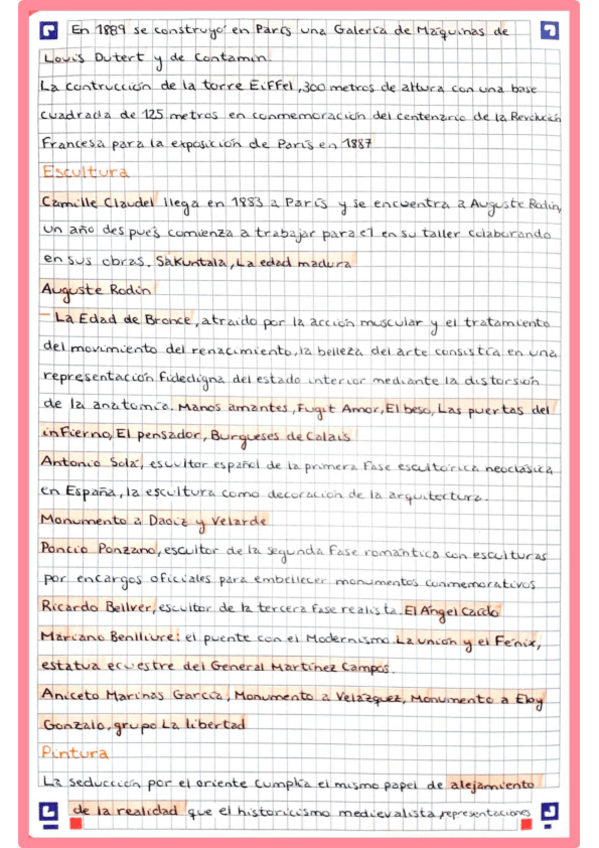 En 1889 se construyo' en París una Galería de Máquinas de
Louis Dutert y de Contamin.
La contrucción de la torre Eiffel, 300 metros de altura con una base
cuadrada de 125 metros en conmemoración del centenario de la Revolución
Francesa para la exposición de París en 1887
Escultura
Camille Claudel llega en 1883 a París y se encuentra a Auguste Rodin,
un año después comienza a trabajar para él en su taller colaborando
en sus obras. Sakuntala, La edad madura
Auguste Rodin
- La Edad de Bronce, atraido por la acción muscular y el tratamiento
del movimiento del renacimiento, la belleza del arte consistía en una
representación fidedigna del estado interior mediante la distorsión
de la anatomía. Manos amantes, Fugit Amor, El beso, Las puertas del
infierno, El pensador, Burgueses de Calais
Antonio Solá, escultor español de la primera fase escultórica neoclásica
en España, la escultura como decoración de la arquitectura.
Monumento a Daoiz y Velarde
Poncio Ponzano, escultor de la segunda fase romántica con esculturas
por encargos oficiales para embellecer monumentos conmemorativos
Ricardo Bellver, escultor de la tercera fase realista. El Ángel Caído
Mariano Benlliure: el puente con el Modernismo. La unión y el Fénix,
estatua ecuestre del General Martínez Campos.
Aniceto Marinas García, Monumento a Velázquez, Monumento a Eloy
Gonzalo, grupo La libertad
Pintura
La seducción por el oriente cumplía el mismo papel de alejamiento
de la realidad que el historicismo medievalista, representaciones